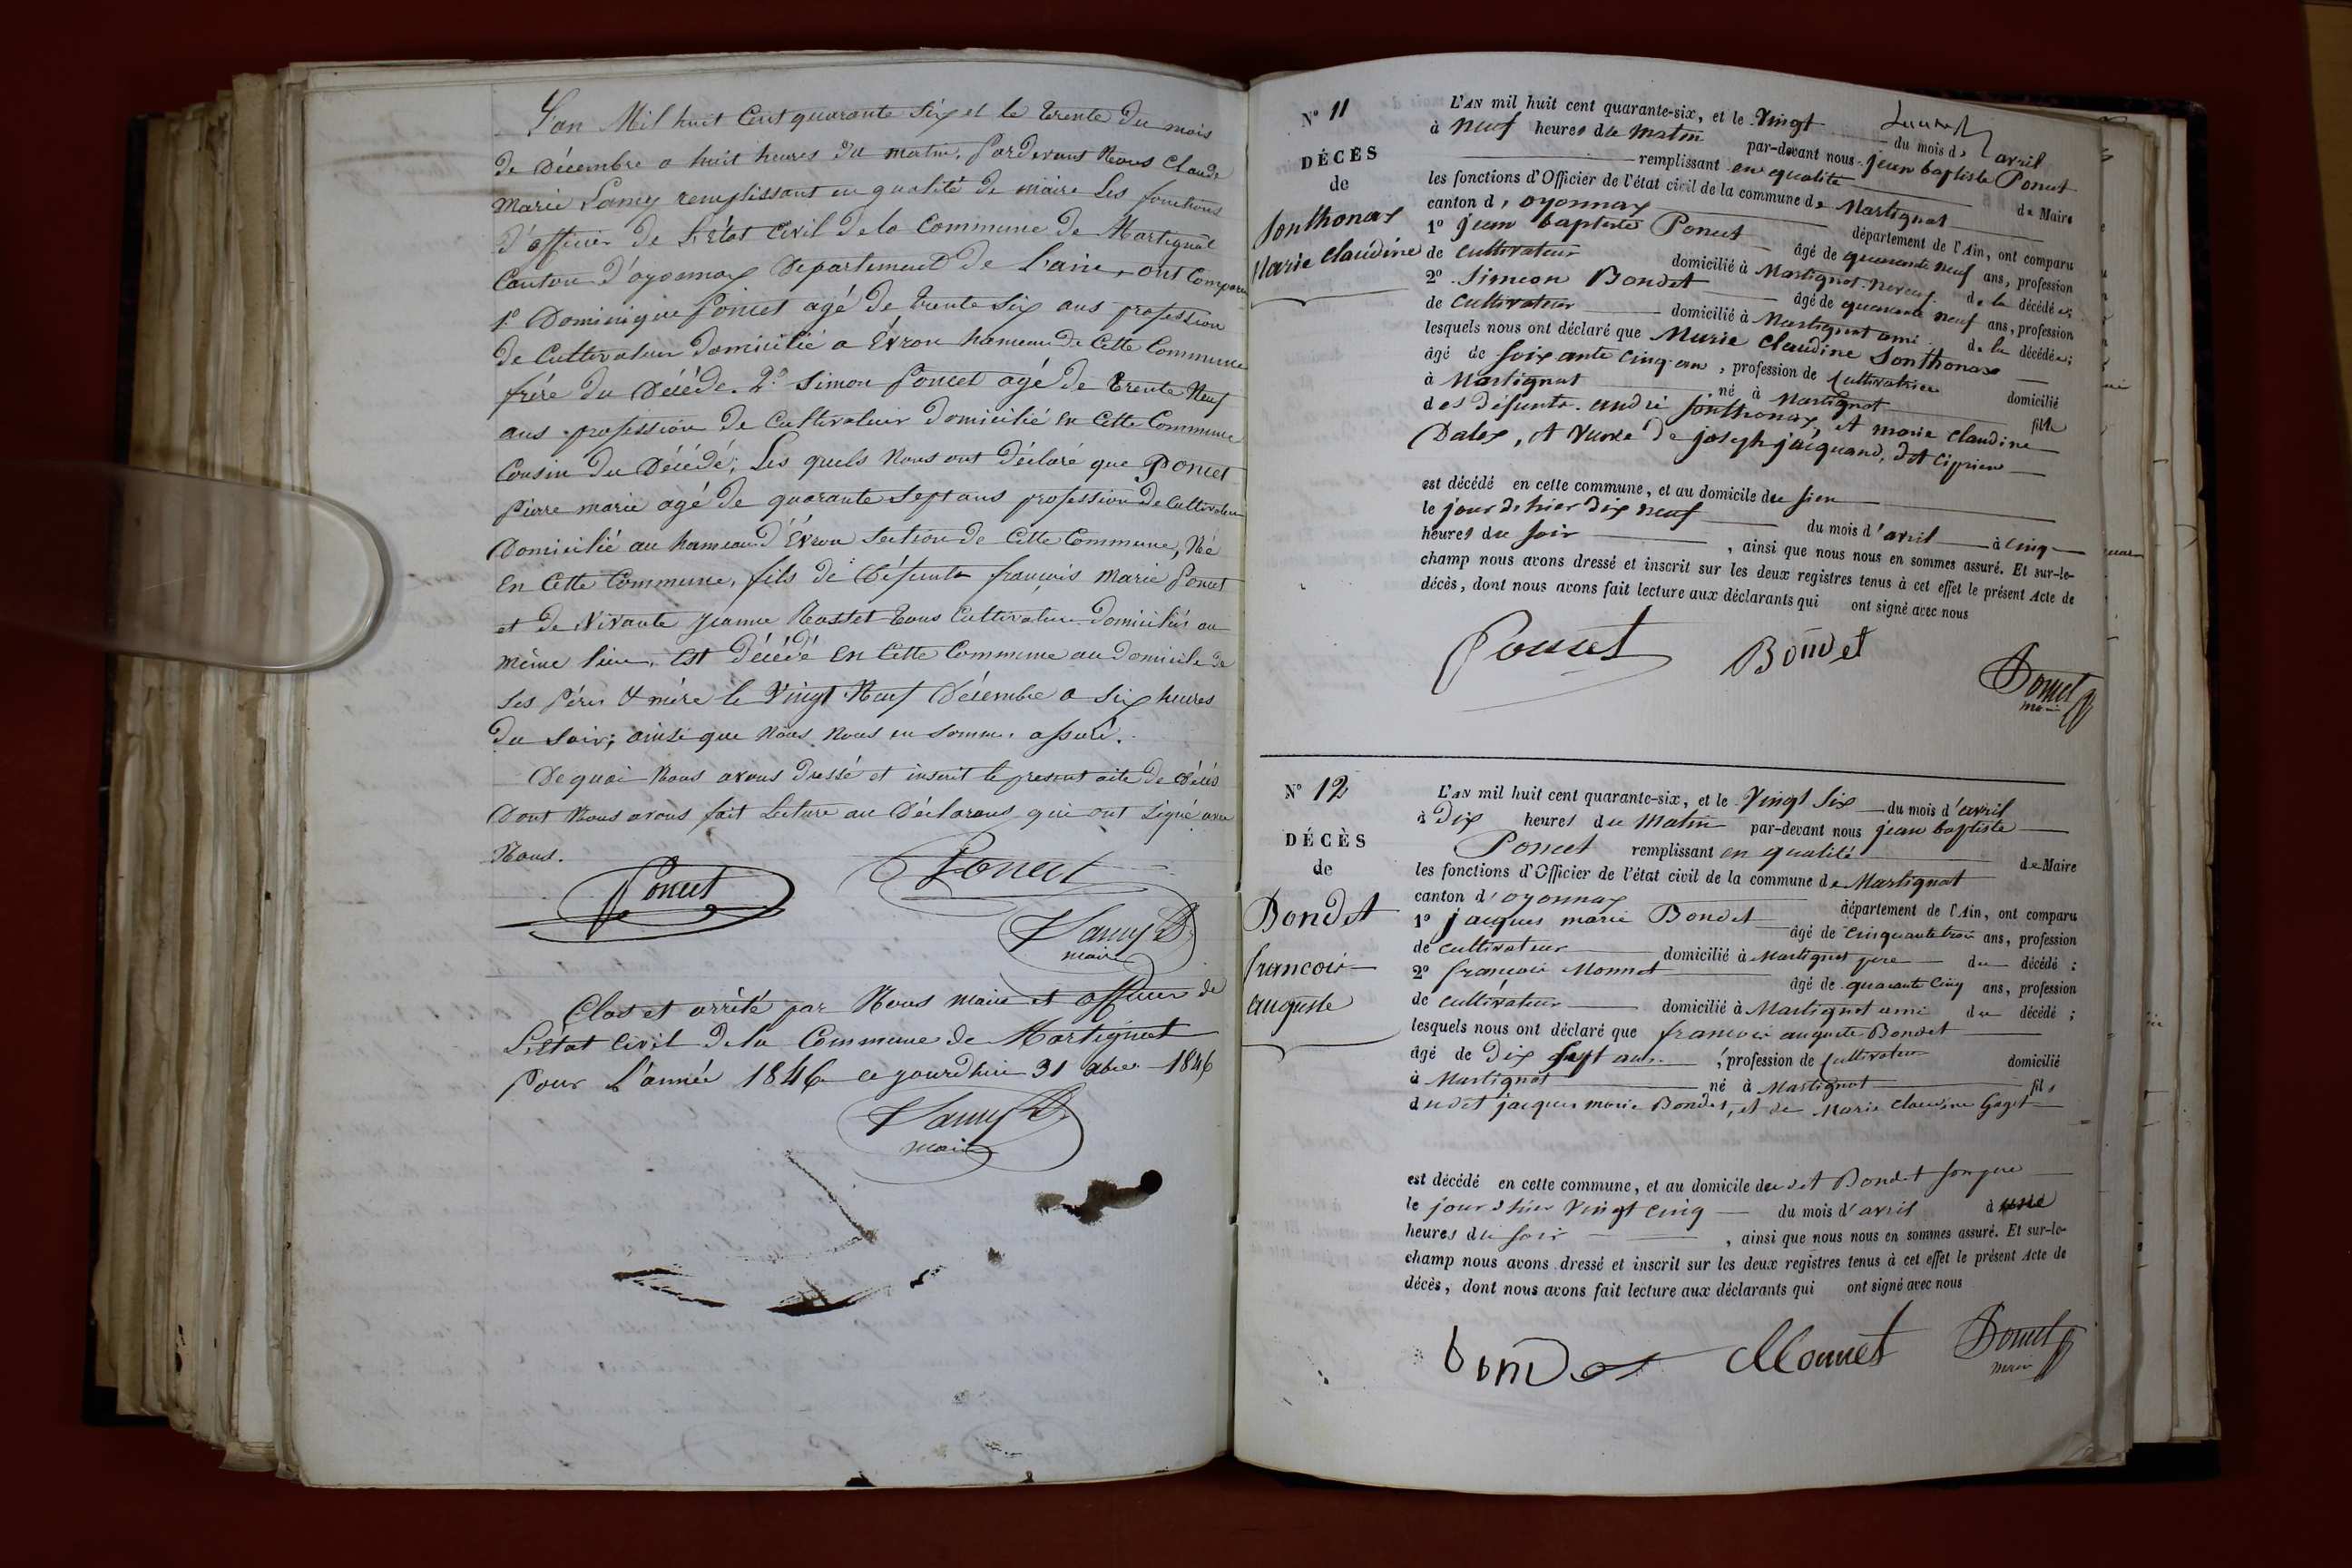 L'an Mil huit Cent quarante Six et le trente du mois
de Décembre a huit heures du matin, Pardevant Nous Claude
Marie Lamy remplissant en qualité de maire Les fonctions
d'officier de L'état Civil de la Commune de Martignat
Canton d'oyonnax Departement de L'ain, ont Comparu
1º Dominique Poncet agé de trente Six ans profession
de Cultivateur domicilié a Évron hameau de Cette Commune
frère du Décédé. 2º Simon Poncet agé de trente Neuf
ans profession de Cultivateur domicilié en Cette Commune
Cousin du Décédé; Les quels Nous ont déclaré que Poncet
Pierre marie agé de quarante Sept ans profession de Cultivateur
Domicilié au hameau d'Évron Section de Cette Commune, Né
En Cette Commune, fils de Défunt françois Marie Poncet
et de Vivante Jeanne Rosset tous Cultivateurs domiciliés au
même lieu, Est décédé En Cette Commune au domicile de
Ses Père & mère le Vingt Neuf Décembre a Six heures
du Soir; ainsi que Nous Nous en Somme assuré.
De quoi Nous avons dressé et inscrit le present acte de Décès
Dont Nous avons fait Lecture au Déclarans qui ont Signé avec
Nous.
Poncet Poncet
Lamy
maire
Clos et arrêté par Nous Maire et officier de
L'état Civil de la Commune de Martignat
Pour L'année 1846 ce jourd'hui 31 xbre 1846
Lamy
maire
Nº 11
DÉCÈS
de
Sonthonax
Marie Claudine
L'AN mil huit cent quarante-six, et le Vingt du mois d'avril
à Neuf heures du Matin par-devant nous jean baptiste Poncet
remplissant en qualité de Maire
les fonctions d'Officier de l'état civil de la commune de Martignat
canton d'oyonnax département de l'Ain, ont comparu
1º jean baptiste Poncet âgé de quarante neuf ans, profession
de Cultivateur domicilié à Martignat neveu de la décédée;
2º Simeon Bondet âgé de quarante neuf ans, profession
de Cultivateur domicilié à Martignat ami de la décédée;
lesquels nous ont déclaré que Marie Claudine Sonthonax
âgé de Soixante Cinq ans, profession de Cultivatrice domicilié
à Martignat né à Martignat fille
des défunts andré Sonthonax, et marie Claudine
Dalex, et Veuve de joseph jacquand, dit Ciprien
est décédé en cette commune, et au domicile du Sien
le jour d'hier Dix neuf du mois d'avril à Cinq
heures du Soir, ainsi que nous nous en sommes assuré. Et sur-le-
champ nous avons dressé et inscrit sur les deux registres tenus à cet effet le présent Acte de
décès, dont nous avons fait lecture aux déclarants qui ont signé avec nous
Poncet Bondet Poncet
maire
Nº 12
DÉCÈS
de
Bondet
francois
auguste
L'AN mil huit cent quarante-six, et le Vingt Six du mois d'avril
à Dix heures du Matin par-devant nous jean baptiste
Poncet remplissant en qualité de Maire
les fonctions d'Officier de l'état civil de la commune de Martignat
canton d'oyonnax département de l'Ain, ont comparu
1º jacques marie Bondet âgé de Cinquante trois ans, profession
de cultivateur domicilié à Martignat pere du décédé;
2º francois Monnet âgé de quarante Cinq ans, profession
de cultivateur domicilié à Martignat ami du décédé;
lesquels nous ont déclaré que francois auguste Bondet
âgé de Dix Sept ans, profession de Cultivateur domicilié
à Martignat né à Martignat fils
dudit jacques marie Bondet, et de Marie Claudine Goyet
est décédé en cette commune, et au domicile du dit Bondet Son pere
le jour d'hier Vingt Cinq du mois d'avril à une
heures du Soir, ainsi que nous nous en sommes assuré. Et sur-le-
champ nous avons dressé et inscrit sur les deux registres tenus à cet effet le présent Acte de
décès, dont nous avons fait lecture aux déclarants qui ont signé avec nous
bondet Monnet Poncet
maire